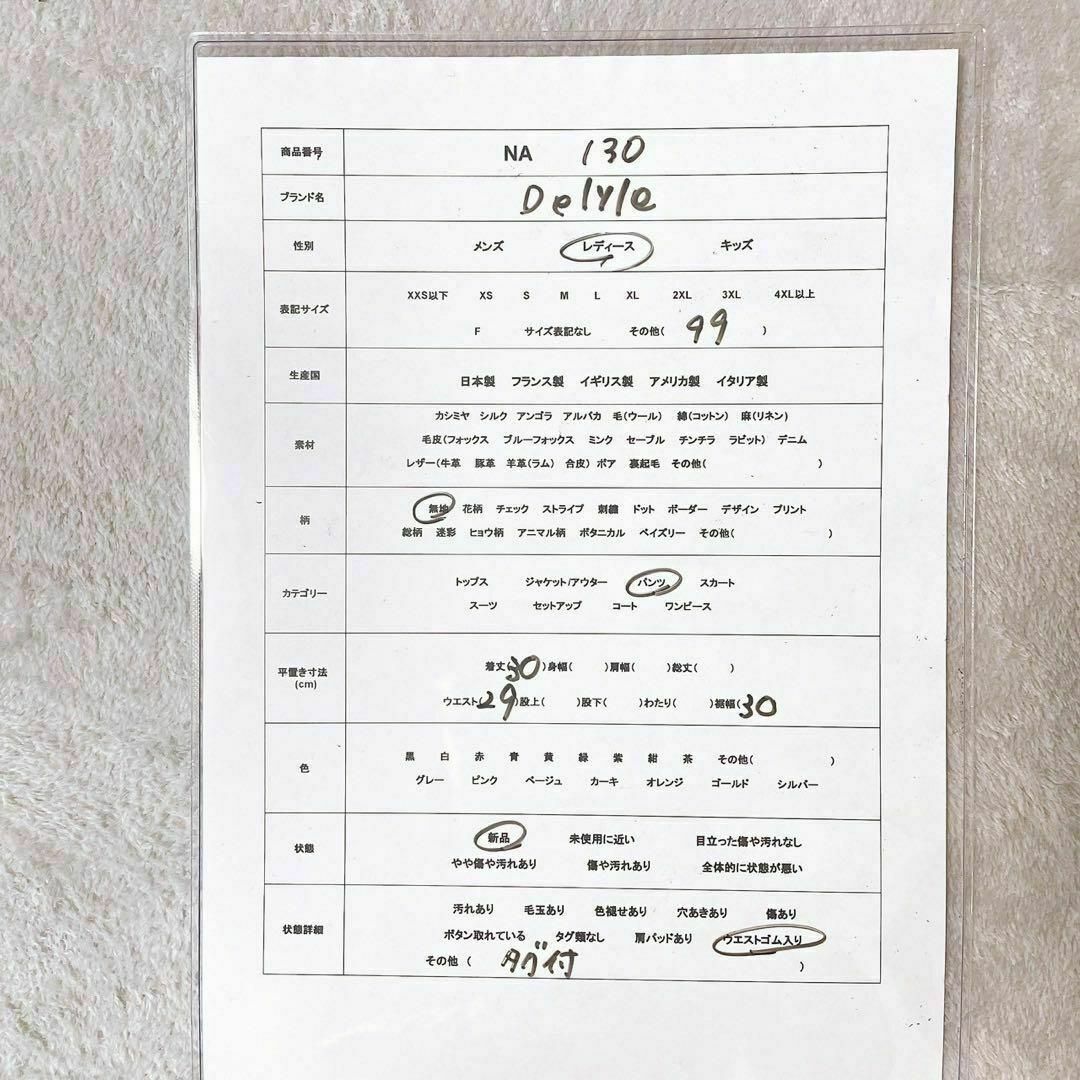 商品番号 NA 130
ブランド名 Delyle
性別 メンズ レディース キッズ
表記サイズ
XXS以下 XS S M L XL 2XL 3XL 4XL以上
F サイズ表記なし その他( 99 )
生産国 日本製 フランス製 イギリス製 アメリカ製 イタリア製
素材
カシミヤ シルク アンゴラ アルパカ 毛(ウール) 綿(コットン) 麻(リネン)
毛皮(フォックス ブルーフォックス ミンク セーブル チンチラ ラビット) デニム
レザー(牛革 豚革 羊革(ラム) 合皮) ボア 裏起毛 その他( )
柄
無地 花柄 チェック ストライプ 刺繍 ドット ボーダー デザイン プリント
総柄 迷彩 ヒョウ柄 アニマル柄 ボタニカル ペイズリー その他( )
カテゴリー
トップス ジャケット/アウター パンツ スカート
スーツ セットアップ コート ワンピース
平置き寸法
(cm)
着丈(30)身幅( )肩幅( )総丈( )
ウエスト(29)股上( )股下( )わたり( )裾幅(30
色
黒 白 赤 青 黄 緑 紫 紺 茶 その他( )
グレー ピンク ベージュ カーキ オレンジ ゴールド シルバー
状態
新品 未使用に近い 目立った傷や汚れなし
やや傷や汚れあり 傷や汚れあり 全体的に状態が悪い
状態詳細
汚れあり 毛玉あり 色褪せあり 穴あきあり 傷あり
ボタン取れている タグ類なし 肩パッドあり ウエストゴム入り
その他 ( タグ付 )